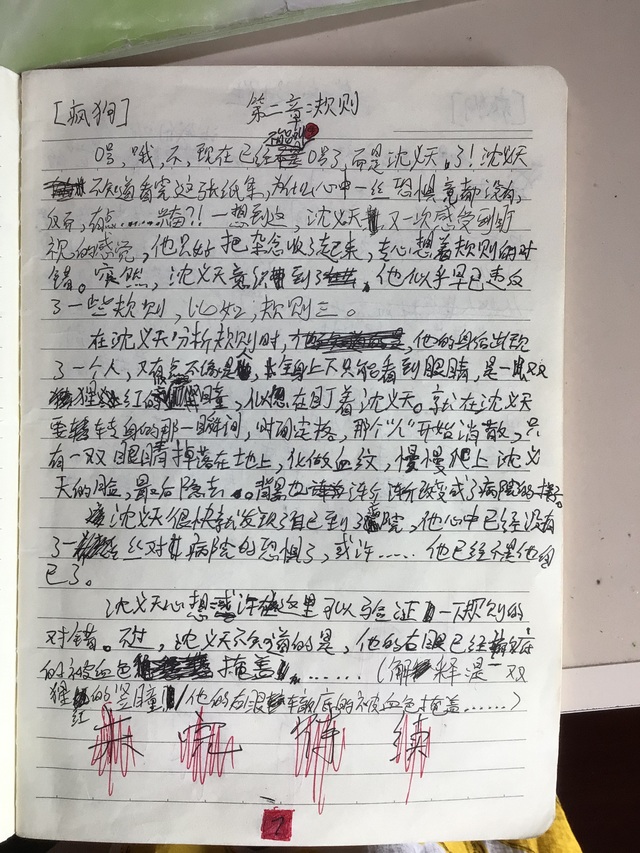 [疯狗] 第二章:规则
0号,哦,不,现在已经不是0号了,而是沈义天了!沈义天
不知道看完这张纸条,为什么心中一丝恐惧竟都没有,
反而,有点……兴奋?!一想到这,沈义天又一次感受到盯
视的感觉,他只好把杂念收了起来,专心想着规则的对
错。突然,沈义天意识到了,他似乎早已违反
了一些规则,比如:规则三。
在沈义天分析规则时,他的身后出现
了一个人,又有点不像是人,全身上下只能看到眼睛,是一双
猩红的瞳,似想在盯着沈义天。就在沈义天
要转身的那一瞬间,时间定格,那个“人”开始消散,只
有一双眼睛掉落在地上,化做血纹,慢慢爬上沈义
天的脸,最后隐去。背景也渐渐改变成了病院的样子。
沈义天很快就发现自己到了病院,他心中已经没有
了一丝对病院的恐惧了,或许……他已经不是他自
己了。
沈义天心想或许在这里可以验证一下规则的
对错。不过,沈义天不知道的是,他的右眼已经彻底
的被血色掩盖……(解释:是一双
猩红的竖瞳!/他的右眼彻底的被血色掩盖……)
未完待续
2